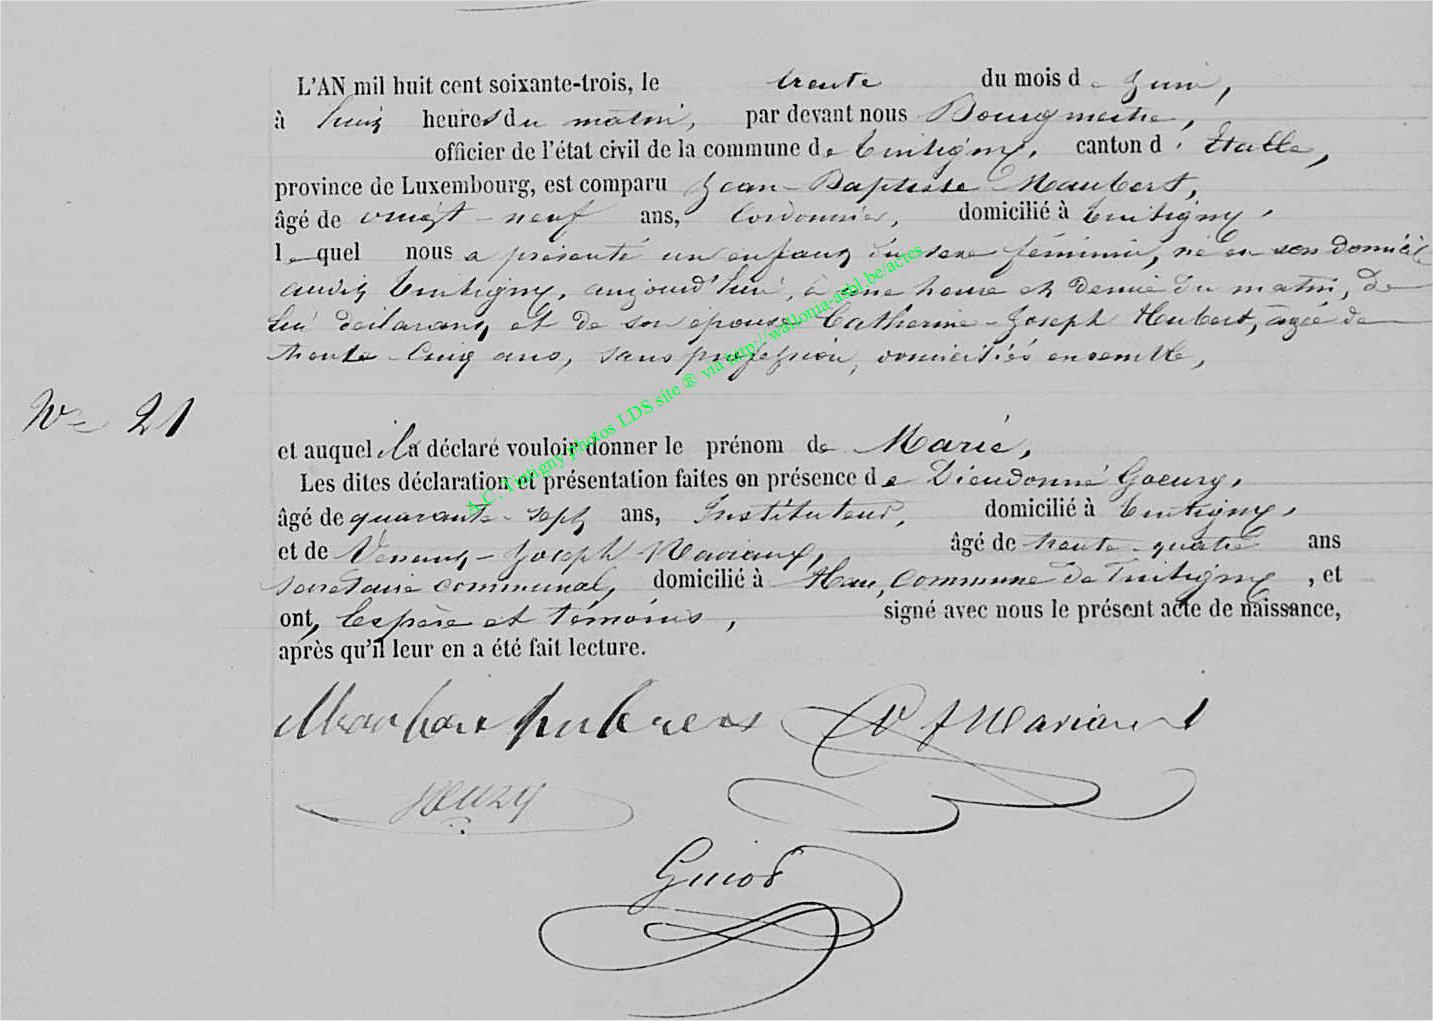 L'AN mil huit cent soixante-trois, le trente du mois de Juin,
à huit heures du matin, par devant nous Bourgmestre,
officier de l'état civil de la commune de Tintigny, canton d'Etalle,
province de Luxembourg, est comparu Jean-Baptiste Maubert,
âgé de vingt-neuf ans, Cordonnier, domicilié à Tintigny,
lequel nous a présenté un enfant du sexe féminin, né en son domicile
audit Tintigny, aujourd'hui, à une heure et demie du matin, de
lui déclarant, et de son épouse Catherine-Joseph Hubert, âgée de
trente-cinq ans, sans profession, domiciliés ensemble,
Nº 21
et auquel il a déclaré vouloir donner le prénom de Marie,
Les dites déclaration et présentation faites en présence de Dieudonné Goeury,
âgé de quarante-sept ans, Instituteur, domicilié à Tintigny,
et de Venant-Joseph Maviaux, âgé de trente-quatre ans
secrétaire communal, domicilié à Han, Commune de Tintigny, et
ont, les père et témoins, signé avec nous le présent acte de naissance,
après qu'il leur en a été fait lecture.
Guiot
A.C. Tintigny photos LDS site ® via http://wallonia-asbl.be/actes